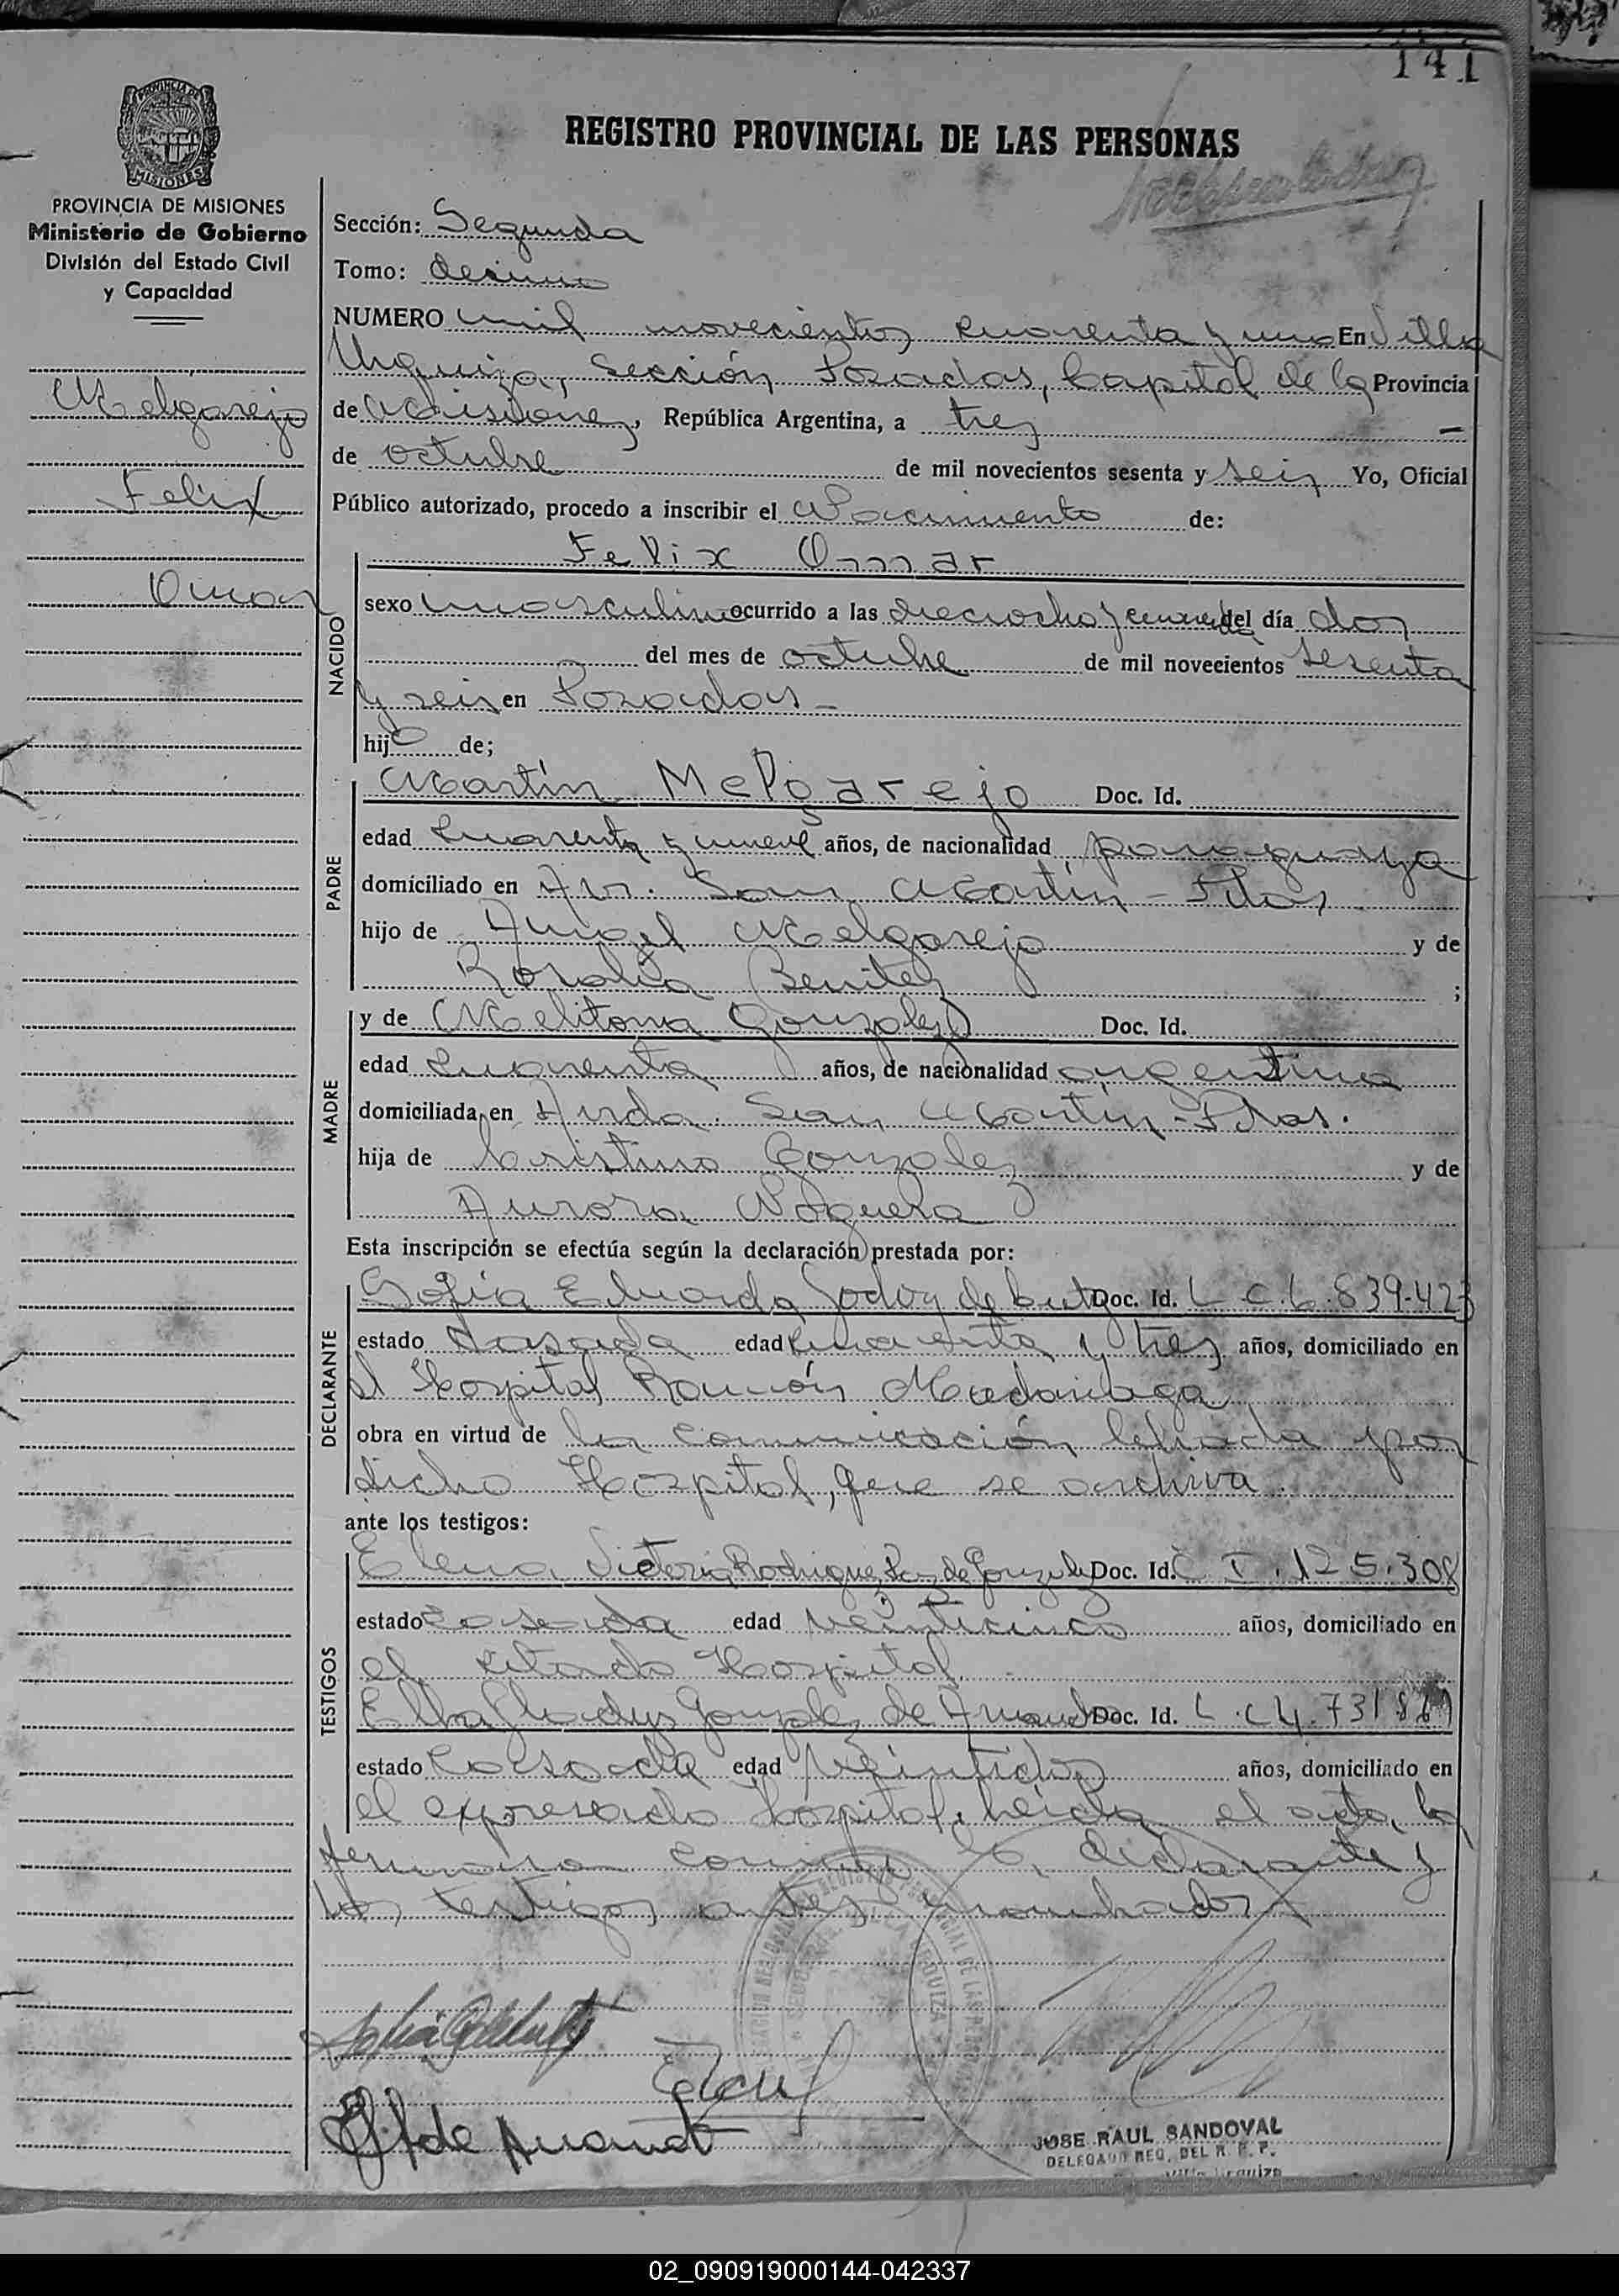 141
REGISTRO PROVINCIAL DE LAS PERSONAS
PROVINCIA DE MISIONES
PROVINCIA DE MISIONES
Ministerio de Gobierno
División del Estado Civil
y Capacidad
Melgarejo
Felix
Omar
Sección: Segunda
Tomo: decimo
NUMERO mil novecientos cuarenta y uno En Villa
Urquiza, Sección Posadas, Capital de la Provincia
de Misiones, República Argentina, a tres
de octubre de mil novecientos sesenta y seis Yo, Oficial
Público autorizado, procedo a inscribir el Nacimiento de:
Felix Omar
NACIDO
sexo masculino ocurrido a las dieciocho y cuarenta del día dos
del mes de octubre de mil novecientos sesenta
y seis en Posadas -
hijo de;
PADRE
Martín Melgarejo Doc. Id.
edad cuarenta y nueve años, de nacionalidad paraguaya
domiciliado en Av. San Martín - Pdas
hijo de Angel Melgarejo y de
Rosalia Benitez ;
MADRE
y de Melitona Gonzalez Doc. Id.
edad cuarenta años, de nacionalidad argentina
domiciliada en Avda. San Martín - Pdas.
hija de Cristino Gonzalez y de
Aurora Noguera
Esta inscripción se efectúa según la declaración prestada por:
DECLARANTE
Sofia Eduarda Godoy de Doc. Id. L.C. 6.839.423
estado casada edad cuarenta y tres años, domiciliado en
el Hospital Ramón Madariaga
obra en virtud de la comunicación labrada por
dicho Hospital, que se archiva
ante los testigos:
TESTIGOS
Elena Victoria Rodriguez de Gonzalez Doc. Id. C.I. 125.308
estado casada edad veinticinco años, domiciliado en
el citado Hospital.
Elba Gladys Gonzalez de Doc. Id. L.C 4.731.8
estado casada edad veintidos años, domiciliado en
el expresado Hospital. Leída el acta, la
firmaron conmigo la declarante y
los testigos antes nombrados
JOSE RAUL SANDOVAL
DELEGADO REG. DEL R. P. P.
Villa Urquiza
02_090919000144-042337